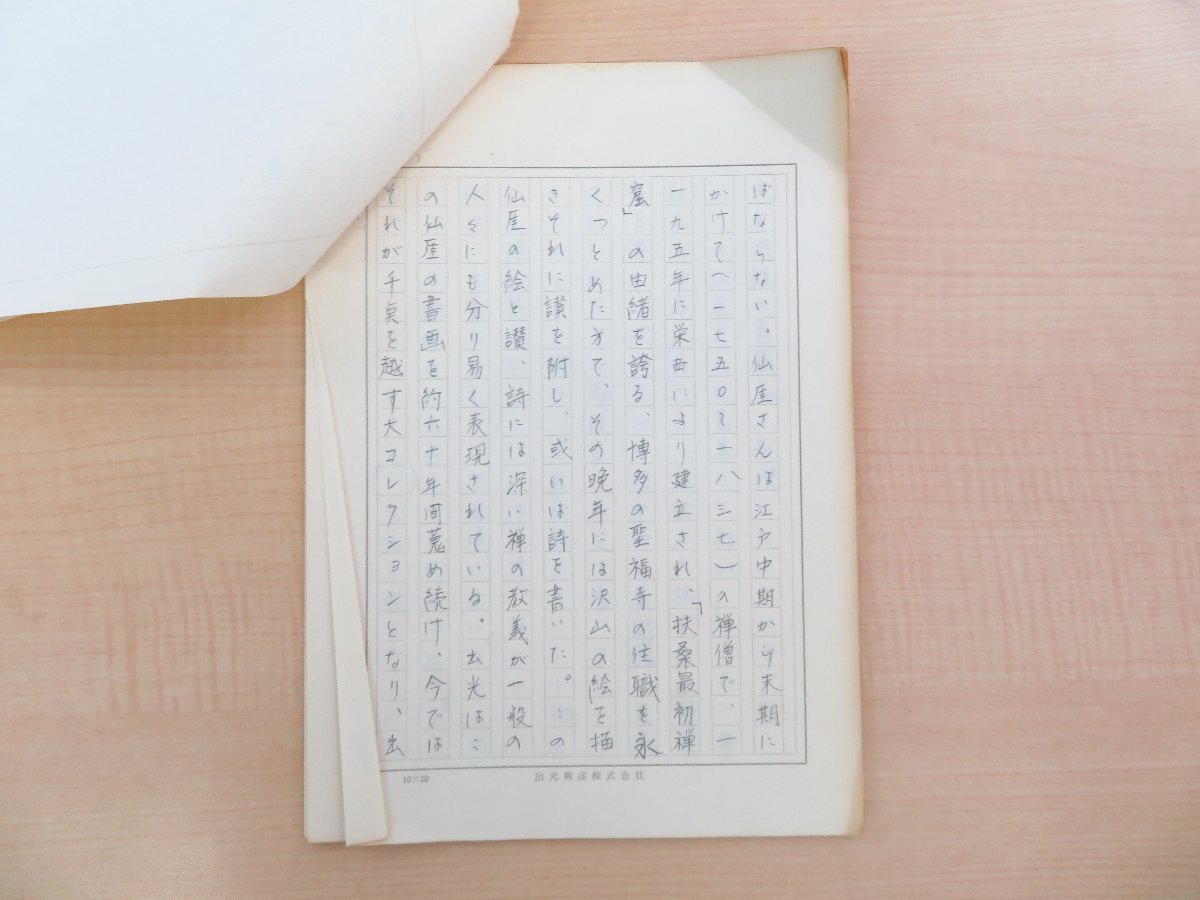 ばならない。仙厓さんは江戸中期から末期に
かけて(一七五〇~一八三七)の禅僧で、一
一九五年に栄西により建立され、「扶桑最初禅
窟」の由緒を誇る、博多の聖福寺の住職を永
くつとめた方で、その晩年には沢山の絵を描
きそれに讃を附し、或いは詩を書いた。この
仙厓の絵と讃、詩には深い禅の教義が一般の
人々にも分り易く表現されている。出光はこ
の仙厓の書画を約六十年间蒐め続け、今では
それが千点を越す大コレクションとなり、出
10×20
出光興産株式会社